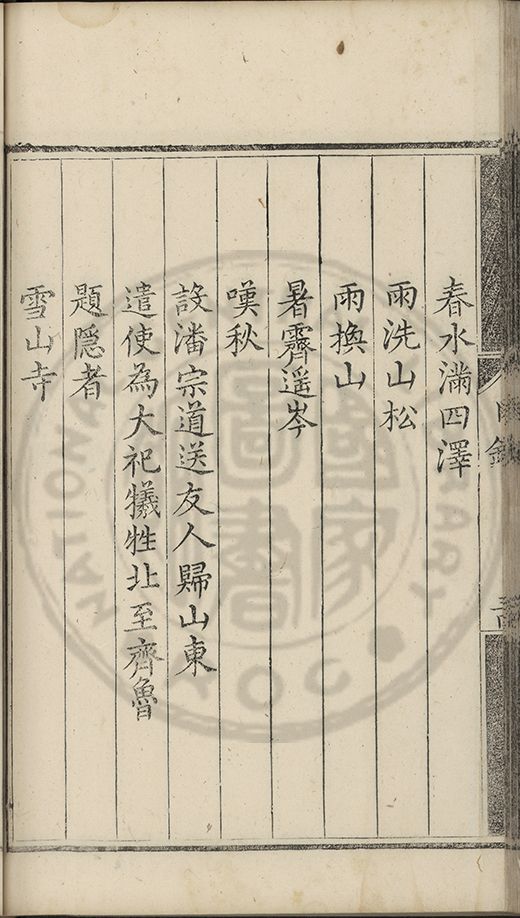 春水滿四澤
雨洗山松
雨換山
暑霽遥岑
嘆秋
設潘宗道送友人歸山東
遣使為大祀犧牲北至齊魯
題隠者
雪山寺
目錄